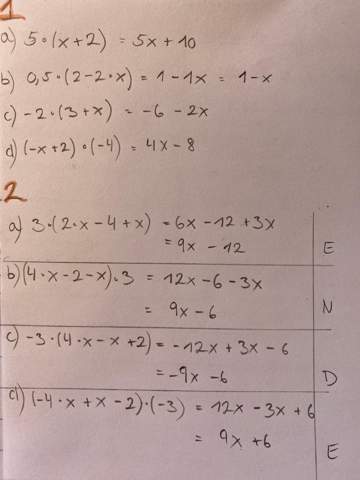 1
a) 5·(x+2) = 5x+10
b) 0,5·(2-2·x) = 1-1x = 1-x
c) -2·(3+x) = -6-2x
d) (-x+2)·(-4) = 4x-8
2
a) 3·(2·x-4+x) = 6x-12+3x
= 9x-12 E
b) (4·x-2-x)·3 = 12x-6-3x
= 9x-6 N
c) -3·(4·x-x+2) = -12x+3x-6
= -9x-6 D
d) (-4·x+x-2)·(-3) = 12x-3x+6
= 9x+6 E